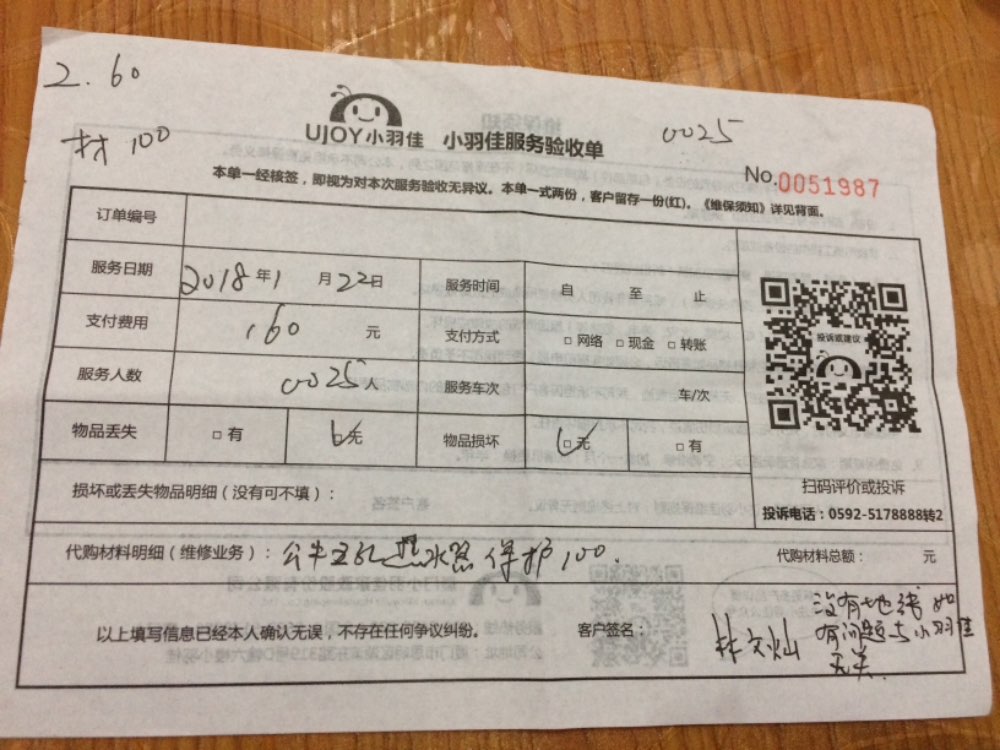 2.60
材 100
UJOY小羽佳 小羽佳服务验收单
0025
No.0051987
本单一经核签，即视为对本次服务验收无异议。本单一式两份，客户留存一份(红)。《维保须知》详见背面。
订单编号
服务日期 2018年1月22日 服务时间 自 至 止
支付费用 160 元 支付方式 □ 网络 □ 现金 □ 转账
服务人数 0025人 服务车次 车/次
物品丢失 □ 有 □ 无 物品损坏 □ 无 □ 有
投诉或建议
扫码评价或投诉
投诉电话：0592-5178888转2
损坏或丢失物品明细（没有可不填）：
代购材料明细（维修业务）：公牛五孔热水器保护100. 代购材料总额： 元
以上填写信息已经本人确认无误，不存在任何争议纠纷。 客户签名： 林文灿
没有地线 如
有问题与小羽佳
无关.